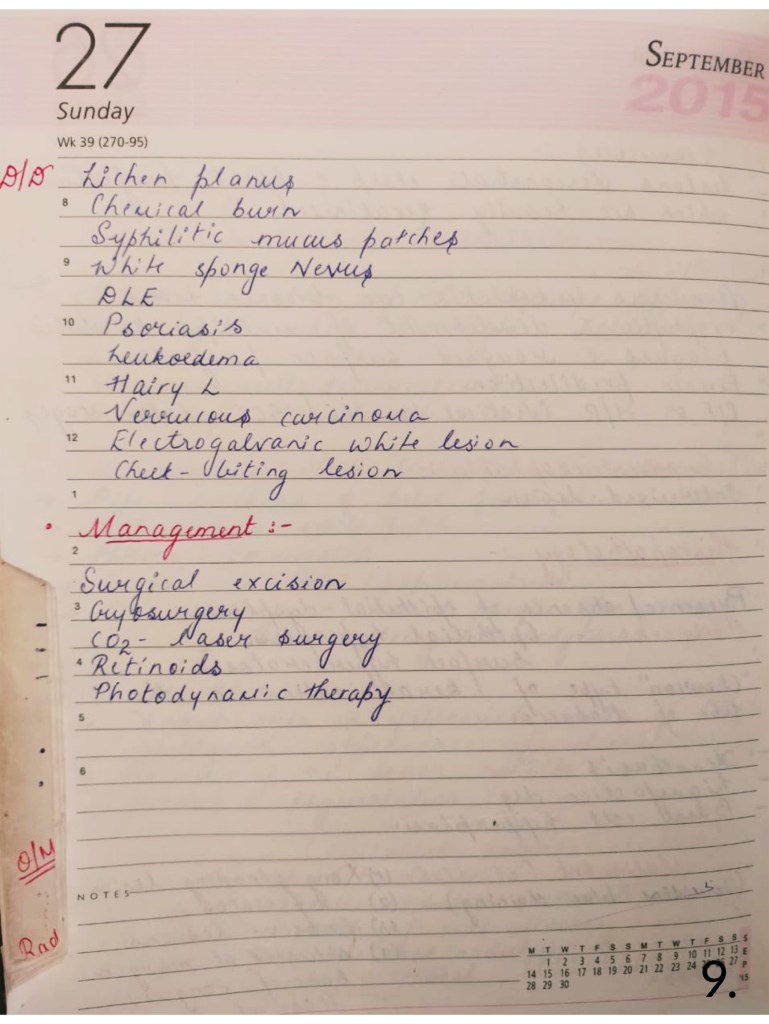 27
SEPTEMBER
2015
Sunday
Wk 39 (270-95)
D/D Lichen planus
8 Chemical burn
Syphilitic mucus patches
9 White sponge Nevus
DLE
10 Psoriasis
Leukoedema
11 Hairy L
Verrucous carcinoma
12 Electrogalvanic white lesion
Cheek-biting lesion
1
• Management :-
2
Surgical excision
3 Cryosurgery
CO2- Laser surgery
4 Retinoids
Photodynamic therapy
5
6
O/M
NOTES
Rad
M T W T F S S M T W T F S S S
1 2 3 4 5 6 7 8 9 10 11 12 13 E
14 15 16 17 18 19 20 21 22 23 24 27 P
28 29 30 '15
9.